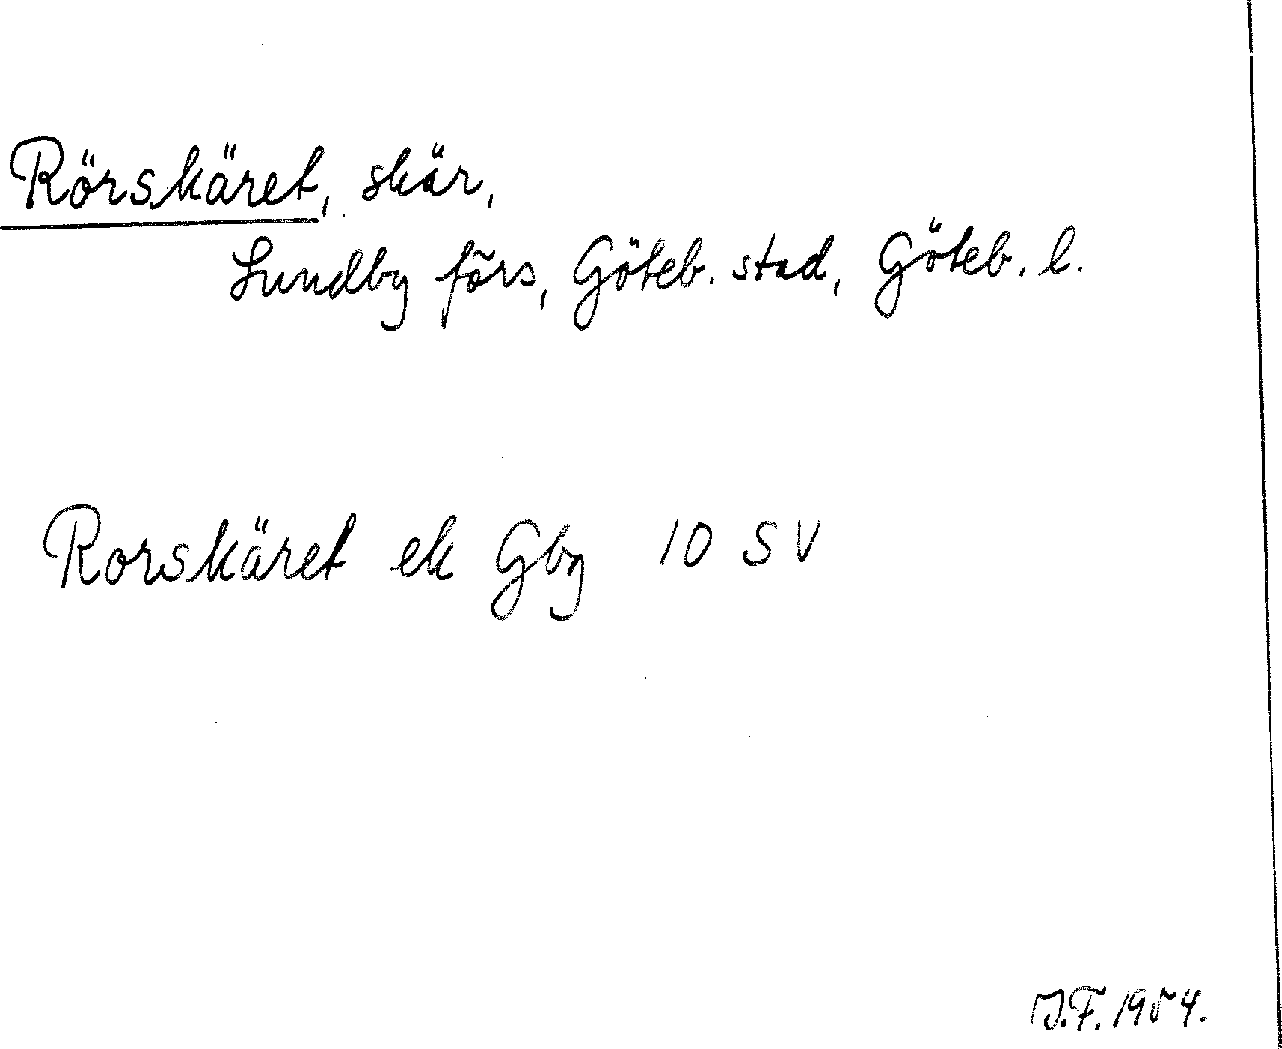 Rörskäret, skär,
Lundby förs, Göteb. stad, Göteb. l.
Rorskäret ek Gby 10 SV
J.F. 1954.